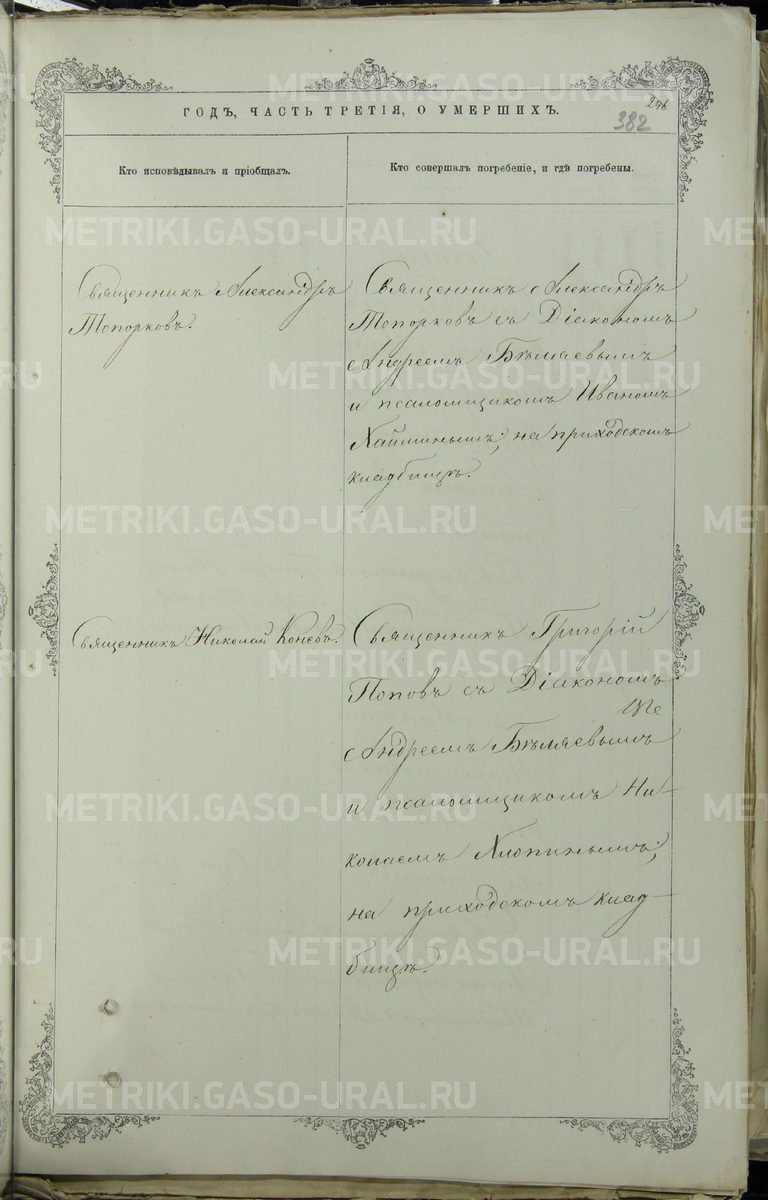 276
382
ГОДЪ, ЧАСТЬ ТРЕТІЯ, О УМЕРШИХЪ.
Кто исповѣдывалъ и пріобщалъ.
Кто совершалъ погребеніе, и гдѣ погребены.
Священникъ Александръ
Топорковъ.
Священникъ Александръ
Топорковъ съ Діакономъ
Андреемъ Бѣляевымъ
и псаломщикомъ Иваномъ
на приходскомъ
кладбищѣ.
Священникъ Николай Коневъ.
Священникъ Григорій
Поповъ съ Діакономъ
Андреемъ Бѣляевымъ
и псаломщикомъ Ни-
колаемъ Хлопинымъ,
на приходскомъ клад-
бищѣ.
METRIKI.GASO-URAL.RU